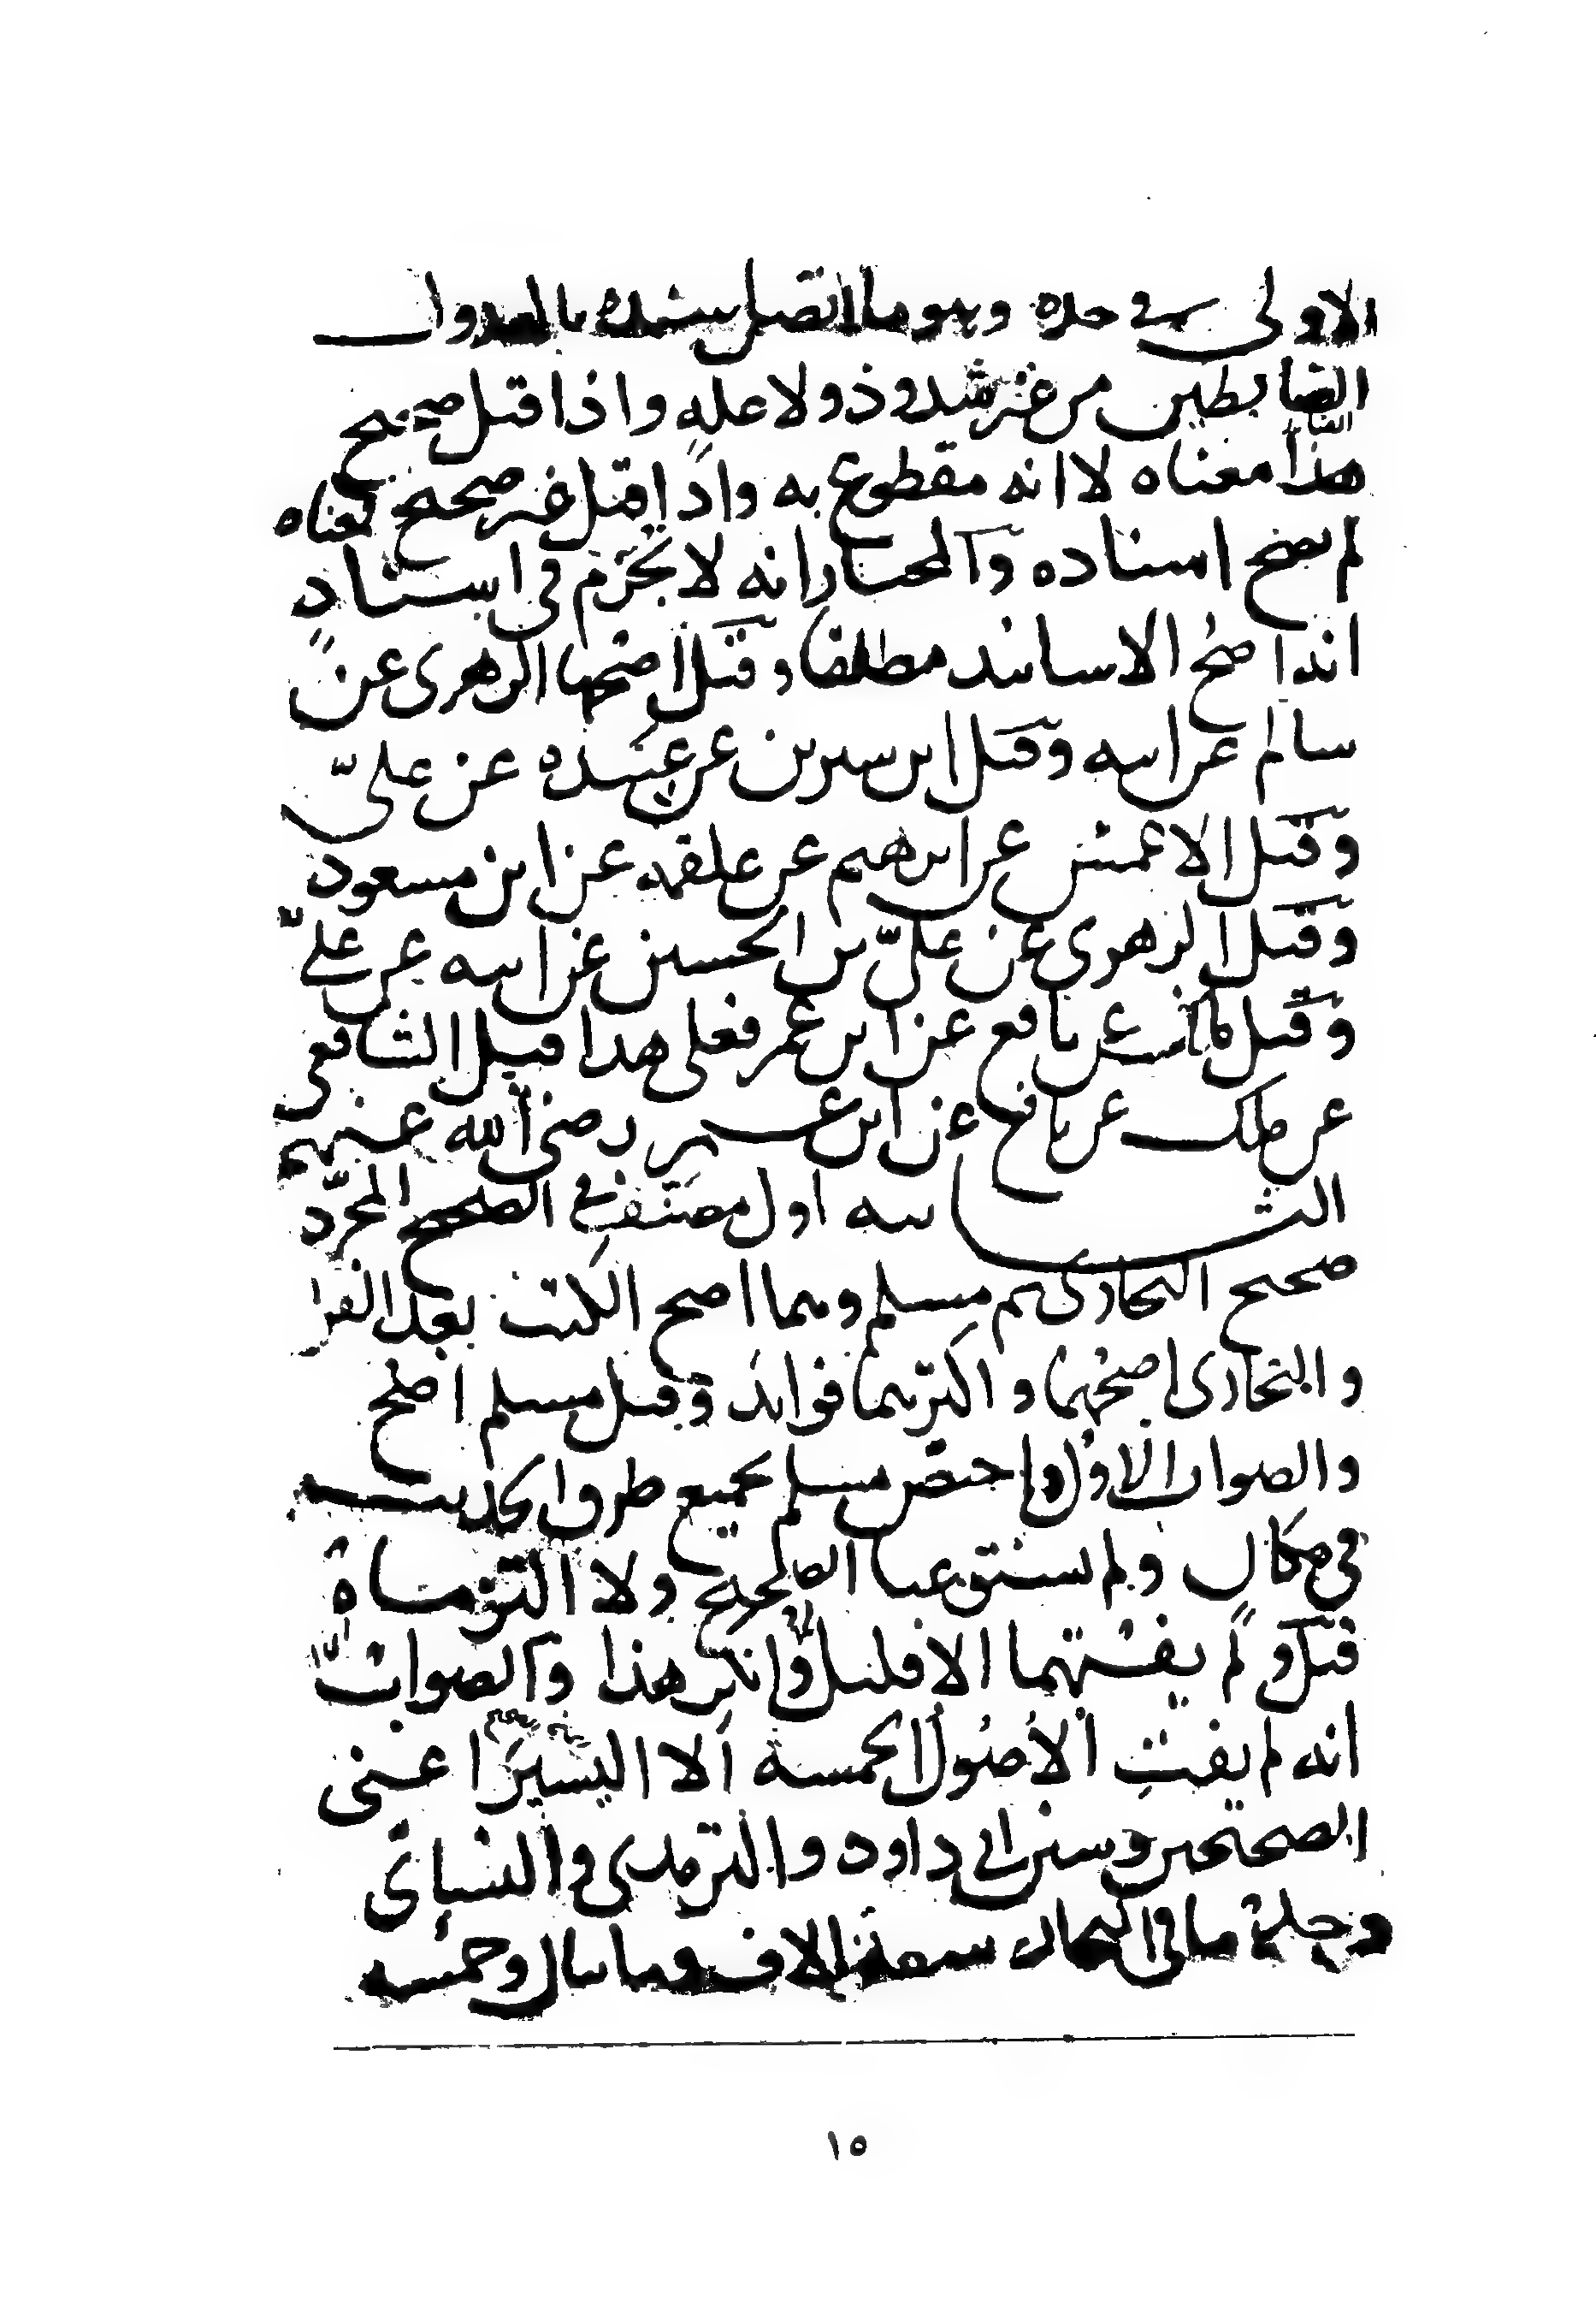 الاولى في حده وهو ما اتصل سنده بالعدول
الضابطين من غير شذوذ ولا علة واذا قيل صحيح
هذا معناه لا انه مقطوع به واذا قيل غير صحيح فمعناه
لم يصح اسناده والمختار انه لا يجزم في اسناد
انه اصح الاسانيد مطلقا وقيل اصحها الزهرى عن
سالم عن ابيه وقيل ابن سيرين عن عبيدة عن علىّ
وقيل الاعمش عن ابرهيم عن علقمه عن ابن مسعود
وقيل الزهرى عن علىّ بن الحسين عن ابيه عن علىّ
وقيل مالك عن نافع عن ابن عمر فعلى هذا قيل الشافعى
عن ملك عن نافع عن ابن عمر رضى الله عنهم
الثانيه اول مصنف في الصحيح المجرّد
صحيح البخارى ثم مسلم وهما اصح الكتب بعد القران
والبخارى اصحهما واكثرهما فوائد وقيل مسلم اصح
والصواب الاول واختص مسلم بجميع طرق الحديث
في مكان ولم يستوعبا الصحيح ولا التزماه
قيل ولم يفتهما الا قليل وانكر هذا والصواب
انه لم يفت الأصُول الخمسة الا اليسير اعنى
الصحيحين وسنن ابى داود والترمذى والنسائى
وجملة ما في البخارى سبعة الاف ومايتان وخمسه
١٥